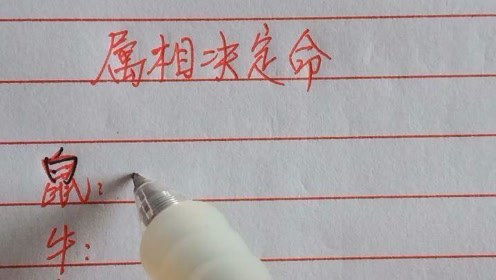 属相决定命
鼠：
牛：